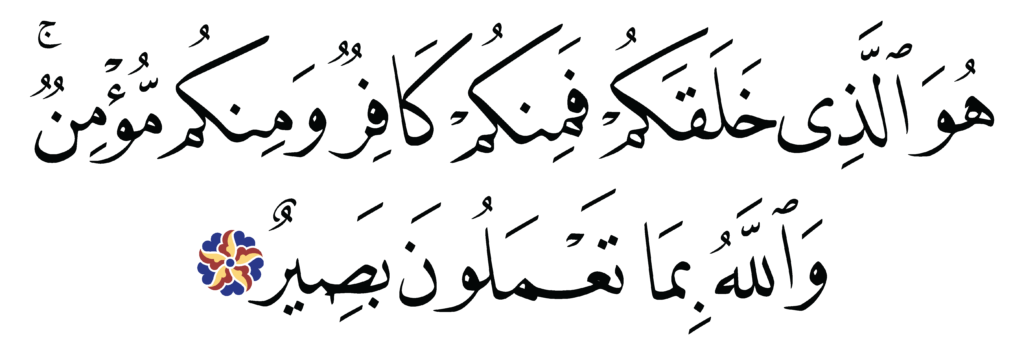 هُوَ ٱلَّذِى خَلَقَكُمْ فَمِنكُمْ كَافِرٌ وَمِنكُم مُّؤْمِنٌ ۚ
وَٱللَّهُ بِمَا تَعْمَلُونَ بَصِيرٌ